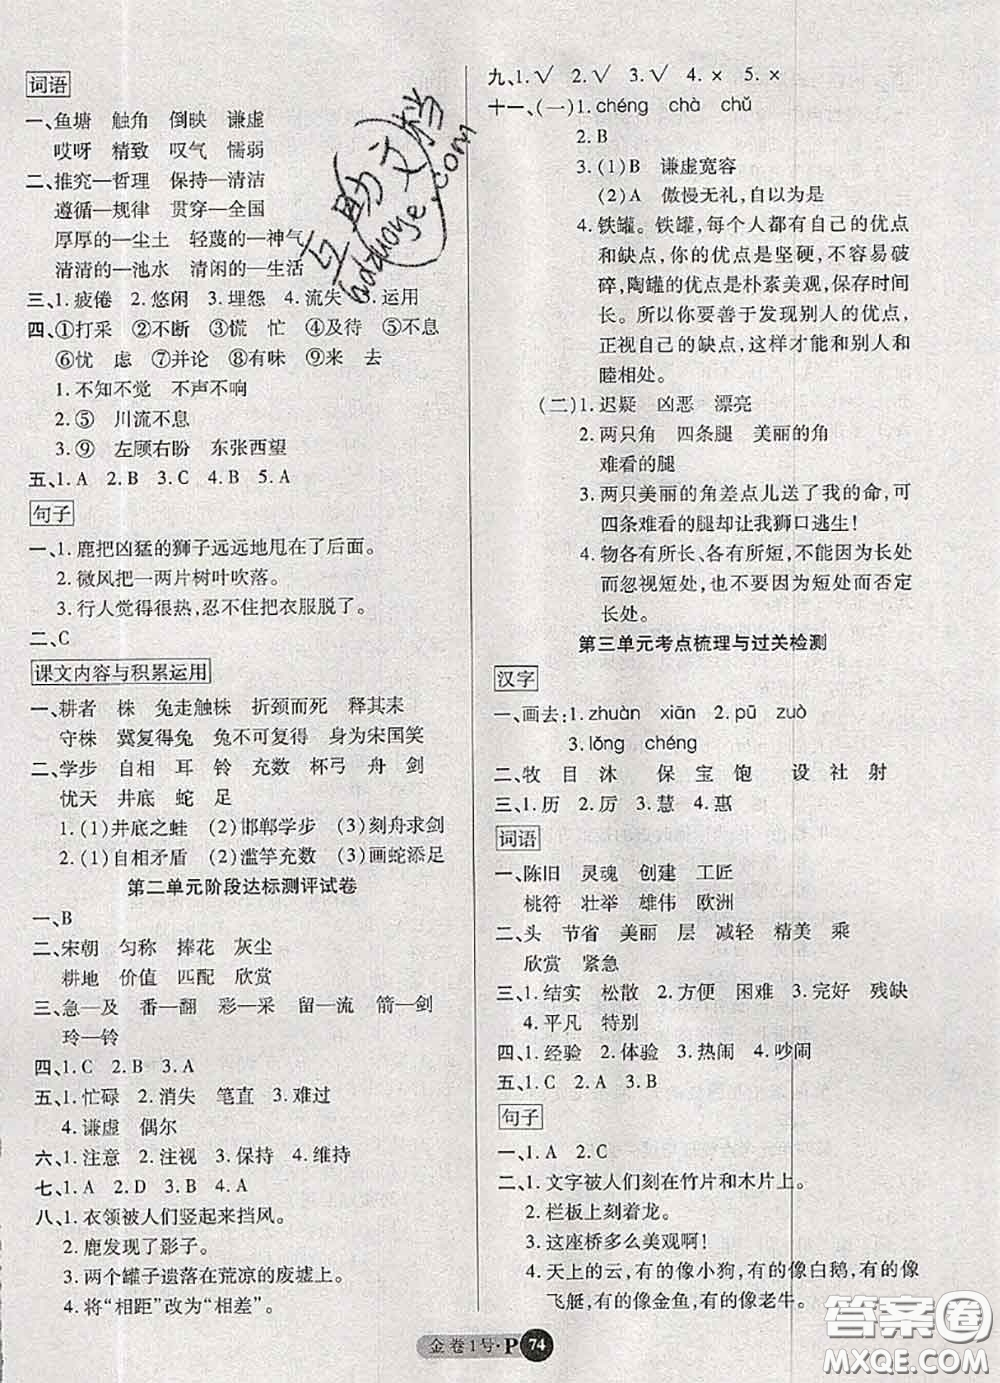 词语
一、鱼塘 触角 倒映 谦虚
哎呀 精致 叹气 懦弱
二、推究—哲理 保持—清洁
遵循—规律 贯穿—全国
厚厚的—尘土 轻蔑的—神气
清清的—池水 清闲的—生活
三、1.疲倦 2.悠闲 3.埋怨 4.流失 5.运用
四、①打采 ②不断 ③慌 忙 ④及待 ⑤不息
⑥忧 虑 ⑦并论 ⑧有味 ⑨来 去
1.不知不觉 不声不响
2.⑤ 川流不息
3.⑨ 左顾右盼 东张西望
五、1.A 2.B 3.C 4.B 5.A
句子
一、1.鹿把凶猛的狮子远远地甩在了后面。
2.微风把一两片树叶吹落。
3.行人觉得很热,忍不住把衣服脱了。
二、C
课文内容与积累运用
一、耕者 株 兔走触株 折颈而死 释其耒
守株 冀复得兔 兔不可复得 身为宋国笑
二、学步 自相 耳 铃 充数 杯弓 舟 剑
忧天 井底 蛇 足
1.(1)井底之蛙 (2)邯郸学步 (3)刻舟求剑
2.(1)自相矛盾 (2)滥竽充数 (3)画蛇添足
第二单元阶段达标测评试卷
一、B
二、宋朝 匀称 捧花 灰尘
耕地 价值 匹配 欣赏
三、急—及 番—翻 彩—采 留—流 箭—剑
玲—铃
四、1.C 2.B 3.A
五、1.忙碌 2.消失 笔直 3.难过
4.谦虚 偶尔
六、1.注意 2.注视 3.保持 4.维持
七、1.A 2.D 3.B 4.A
八、1.衣领被人们竖起来挡风。
2.鹿发现了影子。
3.两个罐子遗落在荒凉的废墟上。
4.将“相距”改为“相差”。
九、1.√ 2.√ 3.√ 4.× 5.×
十一、(一)1.chéng chà chǔ
2.B
3.(1)B 谦虚宽容
(2)A 傲慢无礼,自以为是
4.铁罐。铁罐,每个人都有自己的优点
和缺点,你的优点是坚硬,不容易破
碎,陶罐的优点是朴素美观,保存时间
长。所以你要善于发现别人的优点,
正视自己的缺点,这样才能和别人和
睦相处。
(二)1.迟疑 凶恶 漂亮
2.两只角 四条腿 美丽的角
难看的腿
3.两只美丽的角差点儿送了我的命,可
四条难看的腿却让我狮口逃生!
4.物各有所长、各有所短,不能因为长处
而忽视短处,也不要因为短处而否定
长处。
第三单元考点梳理与过关检测
汉字
一、画去:1.zhuàn xiān 2.pū zuò
3.lǒng chéng
二、牧 目 沐 保 宝 饱 设 社 射
三、1.历 2.厉 3.慧 4.惠
词语
一、陈旧 灵魂 创建 工匠
桃符 壮举 雄伟 欧洲
二、头 节省 美丽 层 减轻 精美 乘
欣赏 紧急
三、1.结实 松散 2.方便 困难 3.完好 残缺
4.平凡 特别
四、1.经验 2.体验 3.热闹 4.吵闹
五、1.C 2.A 3.B
句子
一、1.A 2.C
二、1.文字被人们刻在竹片和木片上。
2.栏板上刻着龙。
3.这座桥多么美观啊!
4.天上的云,有的像小狗,有的像白鹅,有的像
飞艇,有的像金鱼,有的像老牛。
金卷1号·P 74
答案圈
MXQE.COM